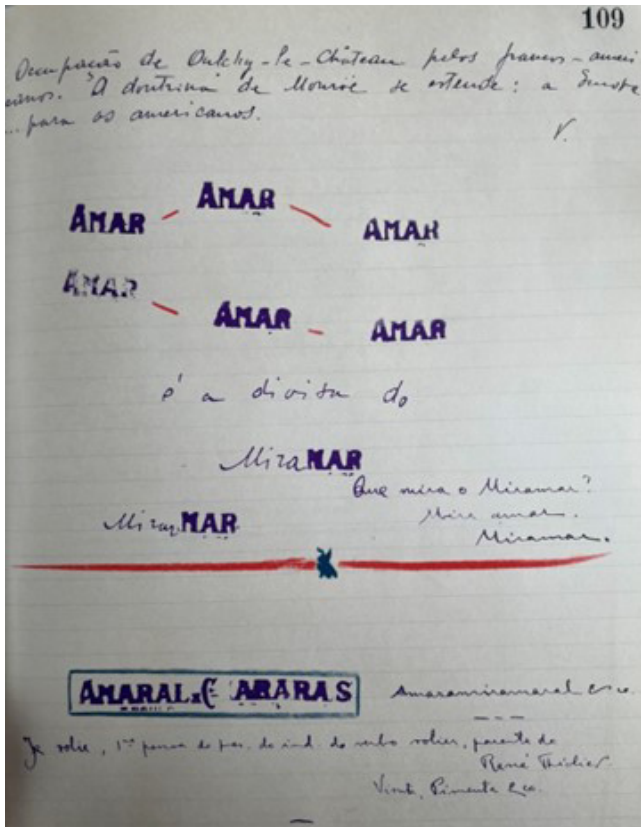 109
Occupação de Oulchy-le-Château pelos franco-ameri
canos. A doutrina de Monroe se estende: a Europa
...para os americanos.
V.
AMAR — AMAR — AMAR
AMAR — AMAR — AMAR
é a divisa do
MiraMAR
Que mira o Miramar?
MiraMAR
Mira amar.
Miramar.
AMARAL & ARARAS
Amaramiramaral & co.
Je rolie, 1ª do ind. do verbo rolier, parente de
René Thiolier
Pimenta & co.